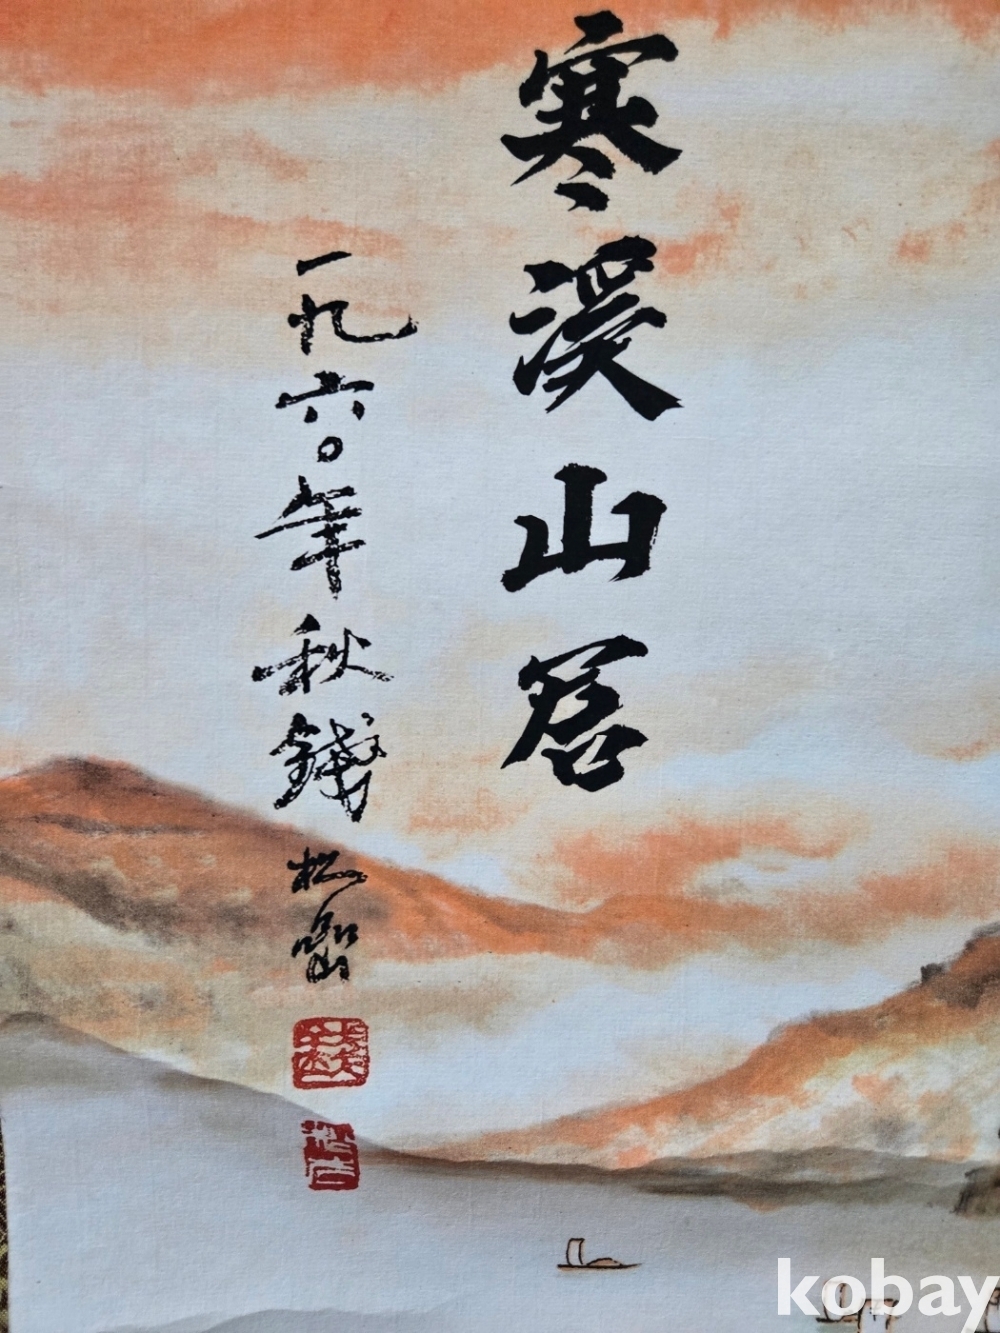 寒溪山居
一九六〇年秋錢松嵒
kobay